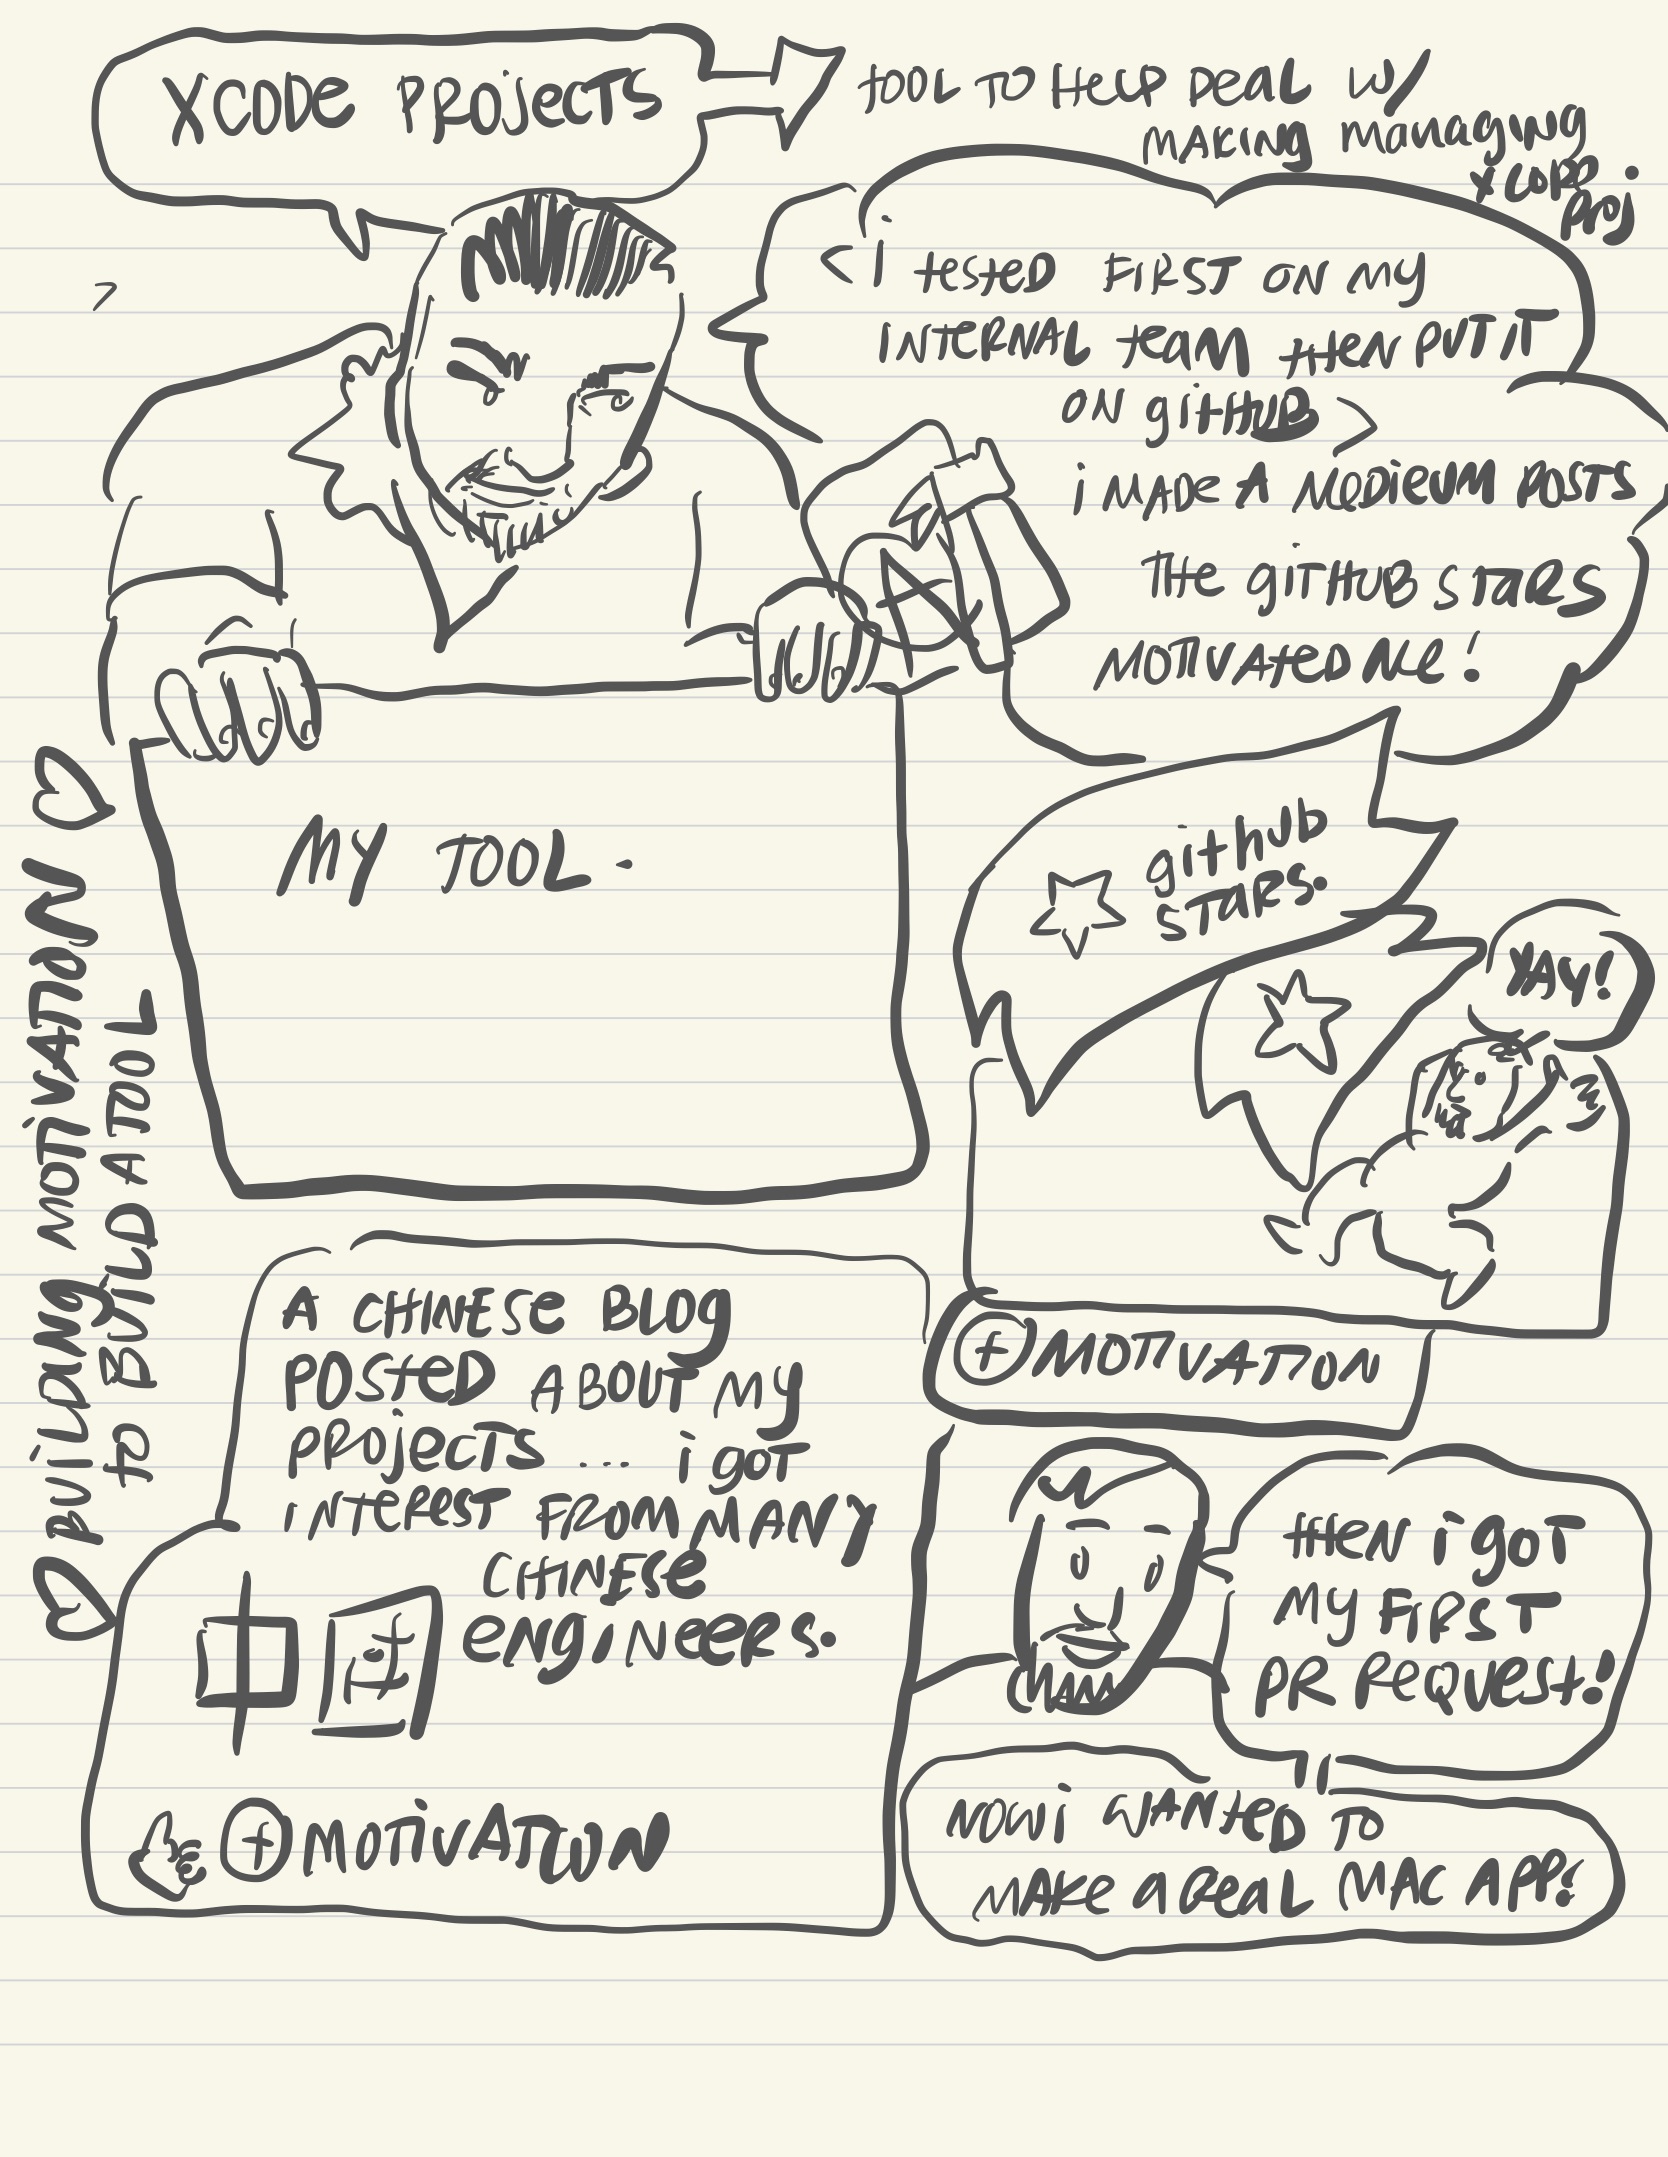 XCODE PROJECTS
TOOL TO HELP DEAL W/
MAKING MANAGING
XCODE
PROJ.
< i TESTED FIRST ON MY
INTERNAL TEAM THEN PUT IT
ON GITHUB >
i MADE A MEDIEUM POSTS
THE GITHUB STARS
MOTIVATED ME!
MY TOOL.
github
STARS.
YAY!
+ MOTIVATION
BUILDING MOTIVATION
to BUILD A TOOL
A CHINESE BLOG
POSTED ABOUT MY
PROJECTS ... i GOT
INTEREST FROM MANY
CHINESE
ENGINEERS.
中国
+ MOTIVATION
THEN i GOT
MY FIRST
PR REQUEST!
NOW i WANTED TO
MAKE A REAL MAC APP!